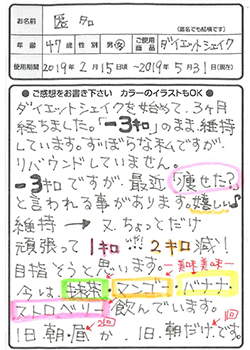 お名前
(匿名でも結構です)
年齢 47才 性別 男・女 ご使用商品 ダイエットシェイク
使用期間 2019年2月15日頃～2019年5月31日(現在)
●ご感想をお書き下さい カラーのイラストもOK●
ダイエットシェイクを始めて、3ヶ月
経ちました。「-3キロ」のまま、維持
しています。ずぼらな私ですが
リバウンドしていません。
-3キロですが、最近「痩せた?」
と言われる事があります。嬉しい♪
維持 → 又ちょっとだけ
頑張って 1キロ 2キロ減!
目指そうと思います。
美味美味
今は、抹茶・マンゴー・バナナ・
ストロベリー 飲んでいます。
1日、朝・昼が 1日、朝だけです。